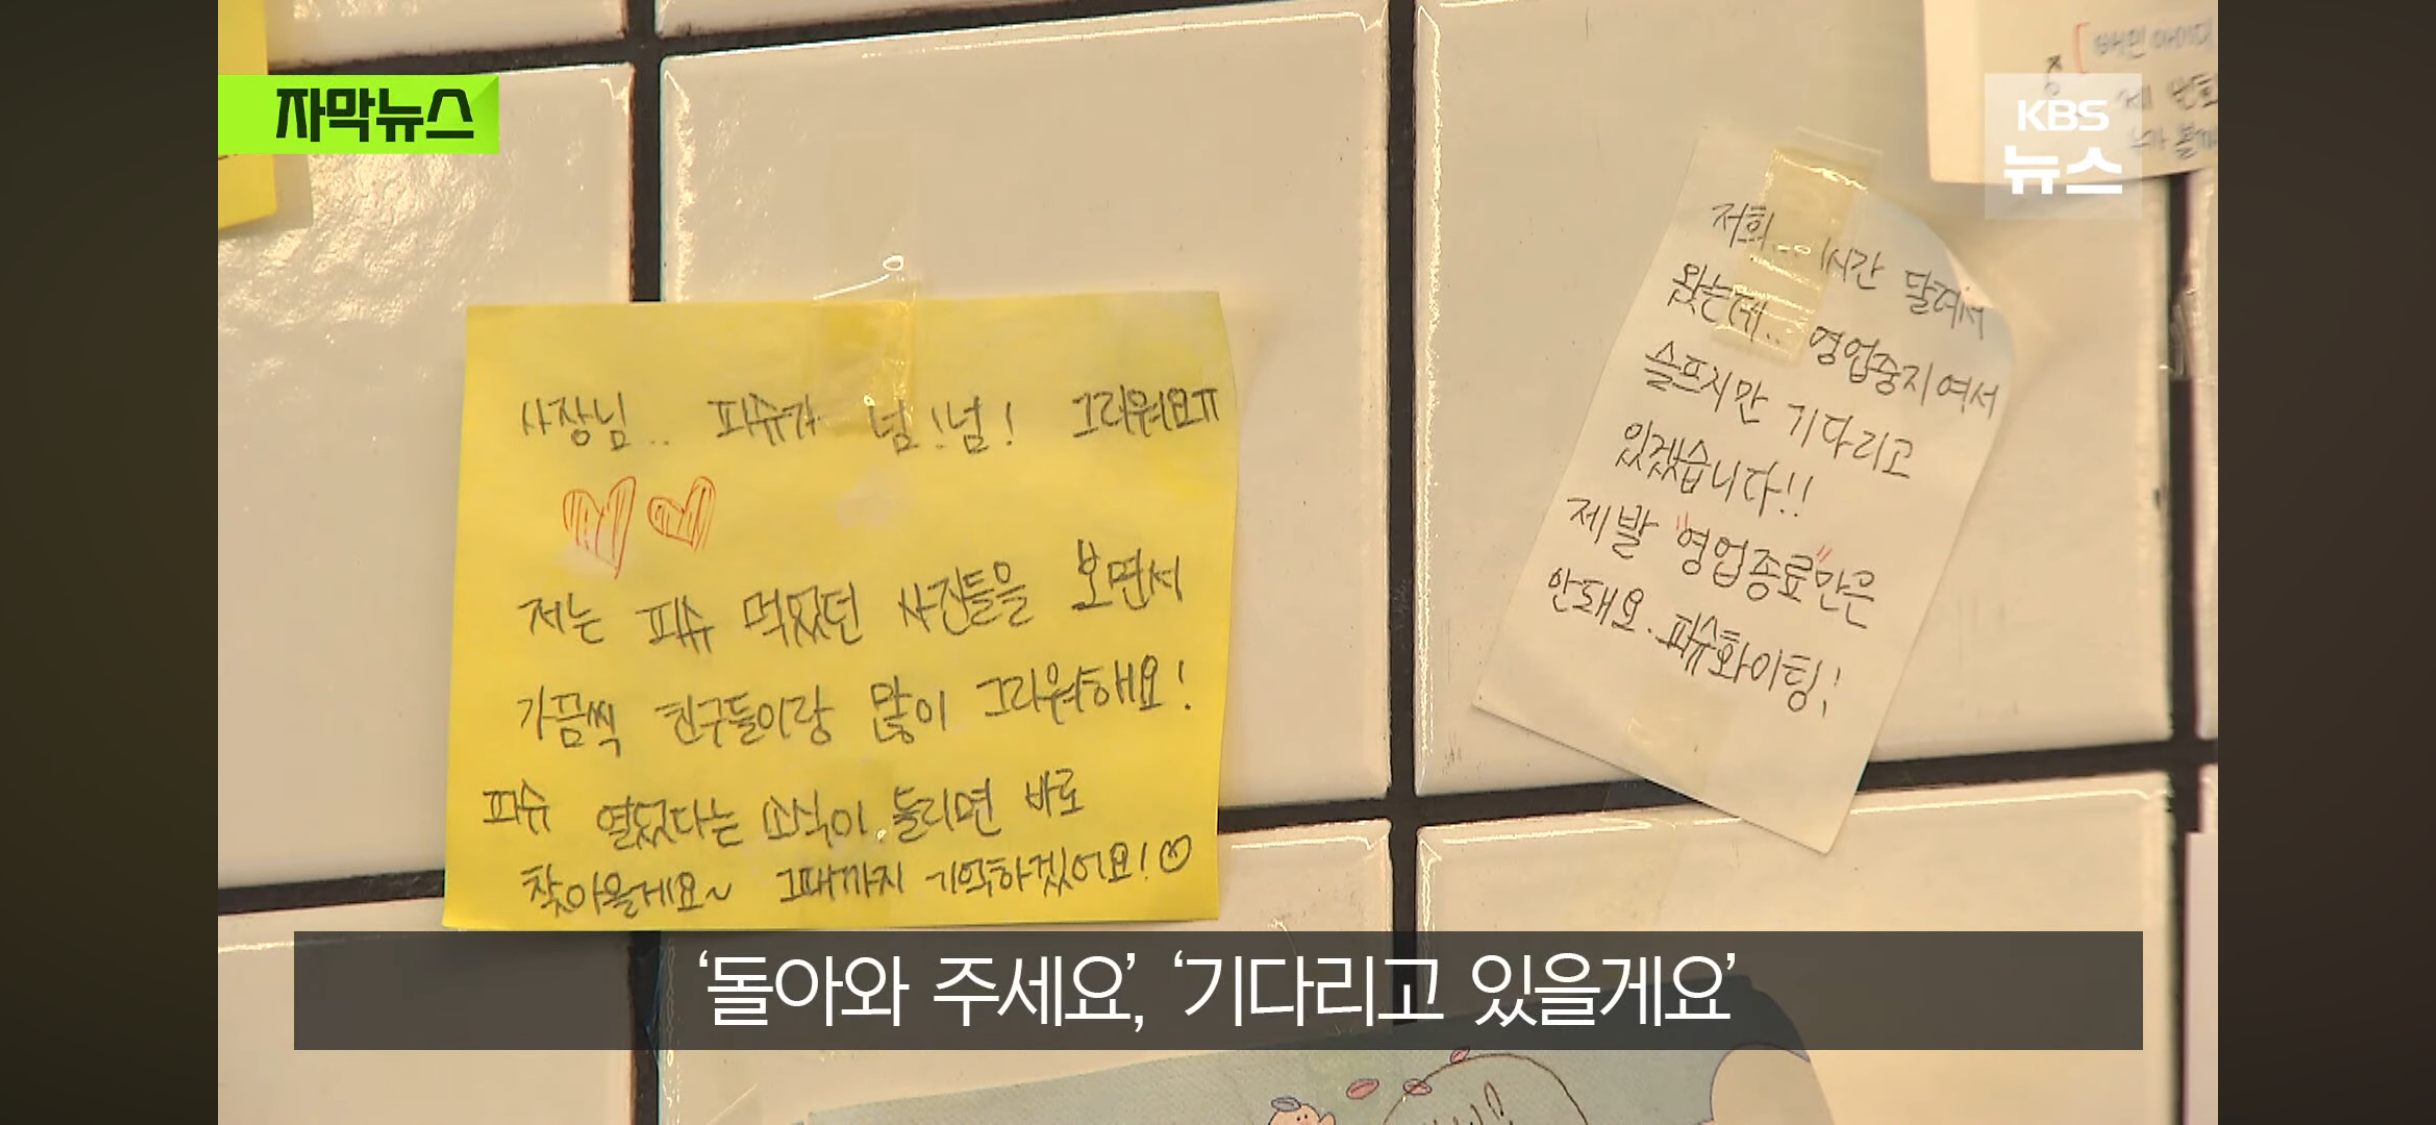 자막뉴스
KBS
뉴스
사장님.. 피슈가 넘!넘! 그리워요ㅠ
저는 피슈 먹었던 사진들을 보면서
가끔씩 친구들이랑 많이 그리워해요!
피슈 열렸다는 소식이 들리면 바로
찾아올게요~ 그때까지 기억하겠어요!♡
저희... 1시간 달려서
왔는데.. 영업중지여서
슬프지만 기다리고
있겠습니다!!
제발 "영업종료"만은
안돼요. 피슈화이팅!
'돌아와 주세요', '기다리고 있을게요'